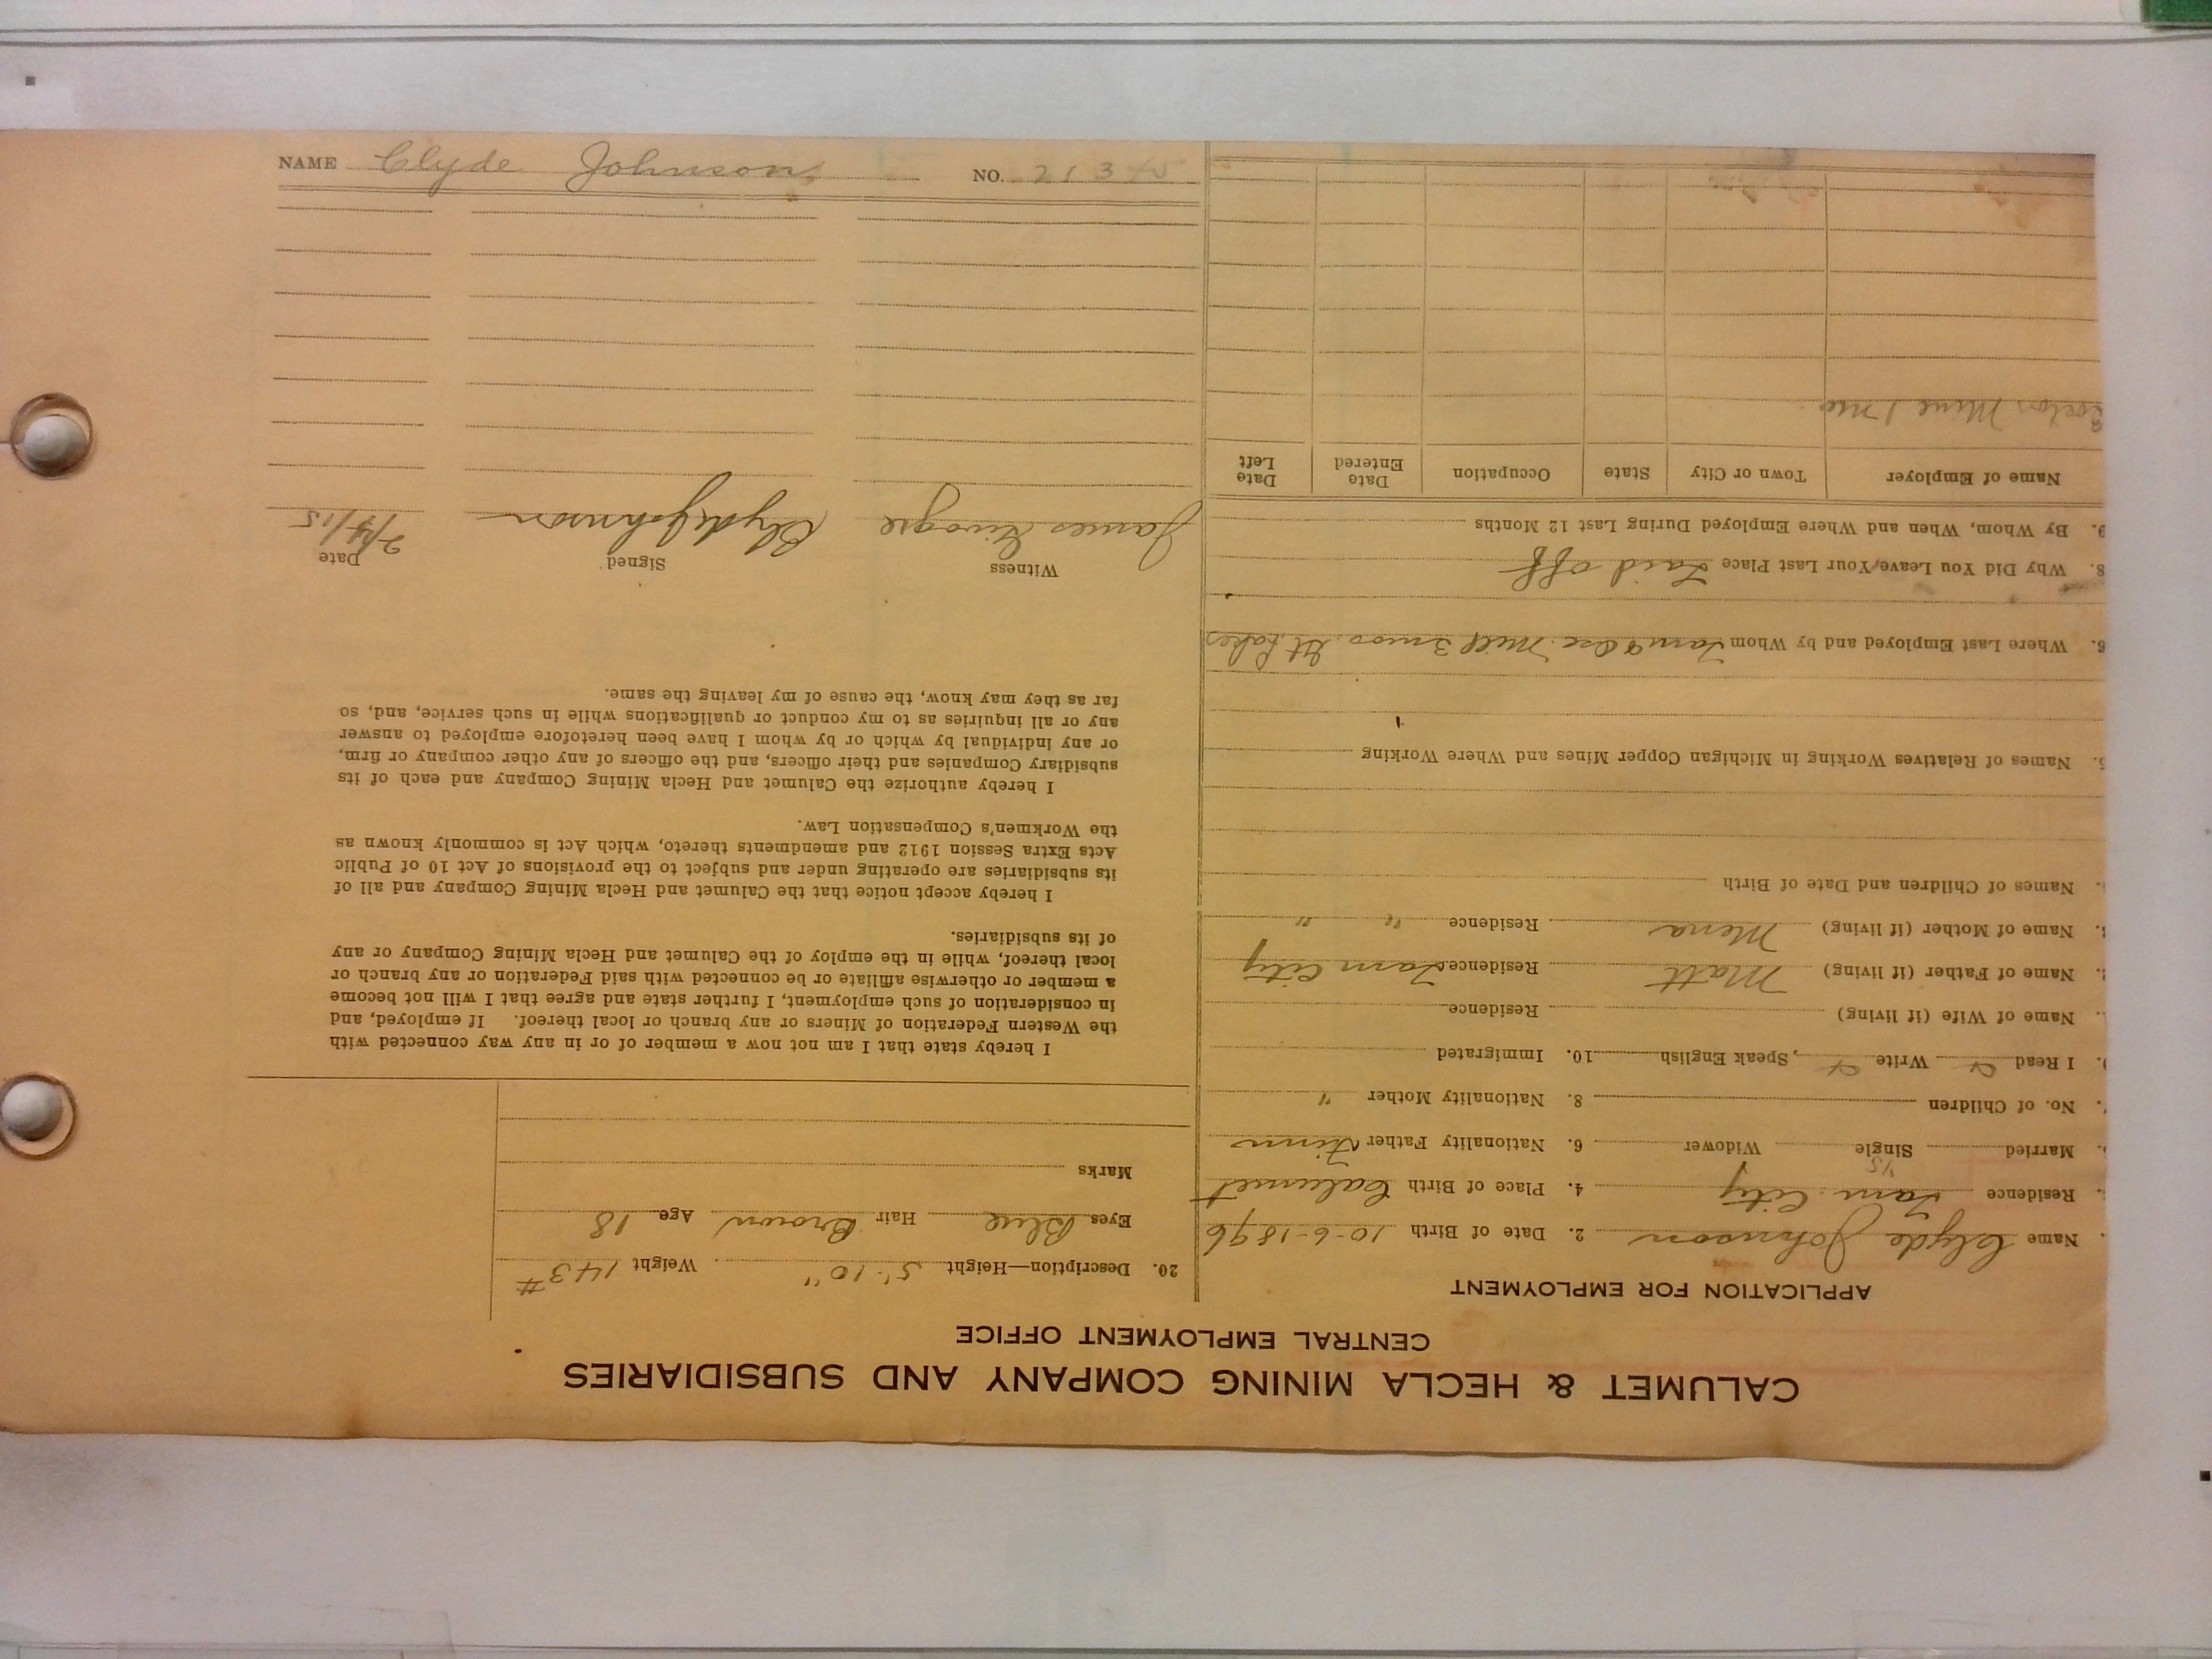 CALUMET & HECLA MINING COMPANY AND SUBSIDIARIES
CENTRAL EMPLOYMENT OFFICE
APPLICATION FOR EMPLOYMENT
Name Clyde Johnson 2. Date of Birth 10-6-1896
Residence Tam. City 4. Place of Birth Calumet
Married Single ys Widower 6. Nationality Father Finn
No. of Children 8. Nationality Mother "
I Read Write , Speak English 10. Immigrated
Name of Wife (if living) Residence
Name of Father (if living) Matt Residence Tam City
Name of Mother (if living) Mena Residence " "
Names of Children and Date of Birth
5. Names of Relatives Working in Michigan Copper Mines and Where Working
6. Where Last Employed and by Whom Tam & Osc. Mill 3 mos. Gt. Lakes
8. Why Did You Leave Your Last Place Laid off
9. By Whom, When and Where Employed During Last 12 Months
Name of Employer Town or City State Occupation Date Entered Date Left
Mine 1 mo.
20. Description—Height 5'-10" Weight 143#
Eyes Blue Hair Brown Age 18
Marks
I hereby state that I am not now a member of or in any way connected with
the Western Federation of Miners or any branch or local thereof. If employed, and
in consideration of such employment, I further state and agree that I will not become
a member or otherwise affiliate or be connected with said Federation or any branch or
local thereof, while in the employ of the Calumet and Hecla Mining Company or any
of its subsidiaries.
I hereby accept notice that the Calumet and Hecla Mining Company and all of
its subsidiaries are operating under and subject to the provisions of Act 10 of Public
Acts Extra Session 1912 and amendments thereto, which Act is commonly known as
the Workmen's Compensation Law.
I hereby authorize the Calumet and Hecla Mining Company and each of its
subsidiary Companies and their officers, and the officers of any other company or firm,
or any individual by which or by whom I have been heretofore employed to answer
any or all inquiries as to my conduct or qualifications while in such service, and, so
far as they may know, the cause of my leaving the same.
Witness Signed Date
James Clyde Johnson
NAME Clyde Johnson NO. 21345